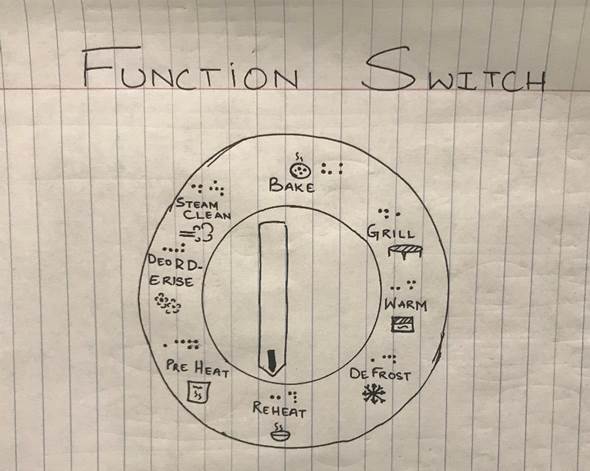 FUNCTION SWITCH
BAKE
GRILL
WARM
DEFROST
REHEAT
PRE HEAT
DEORD-
ERISE
STEAM
CLEAN